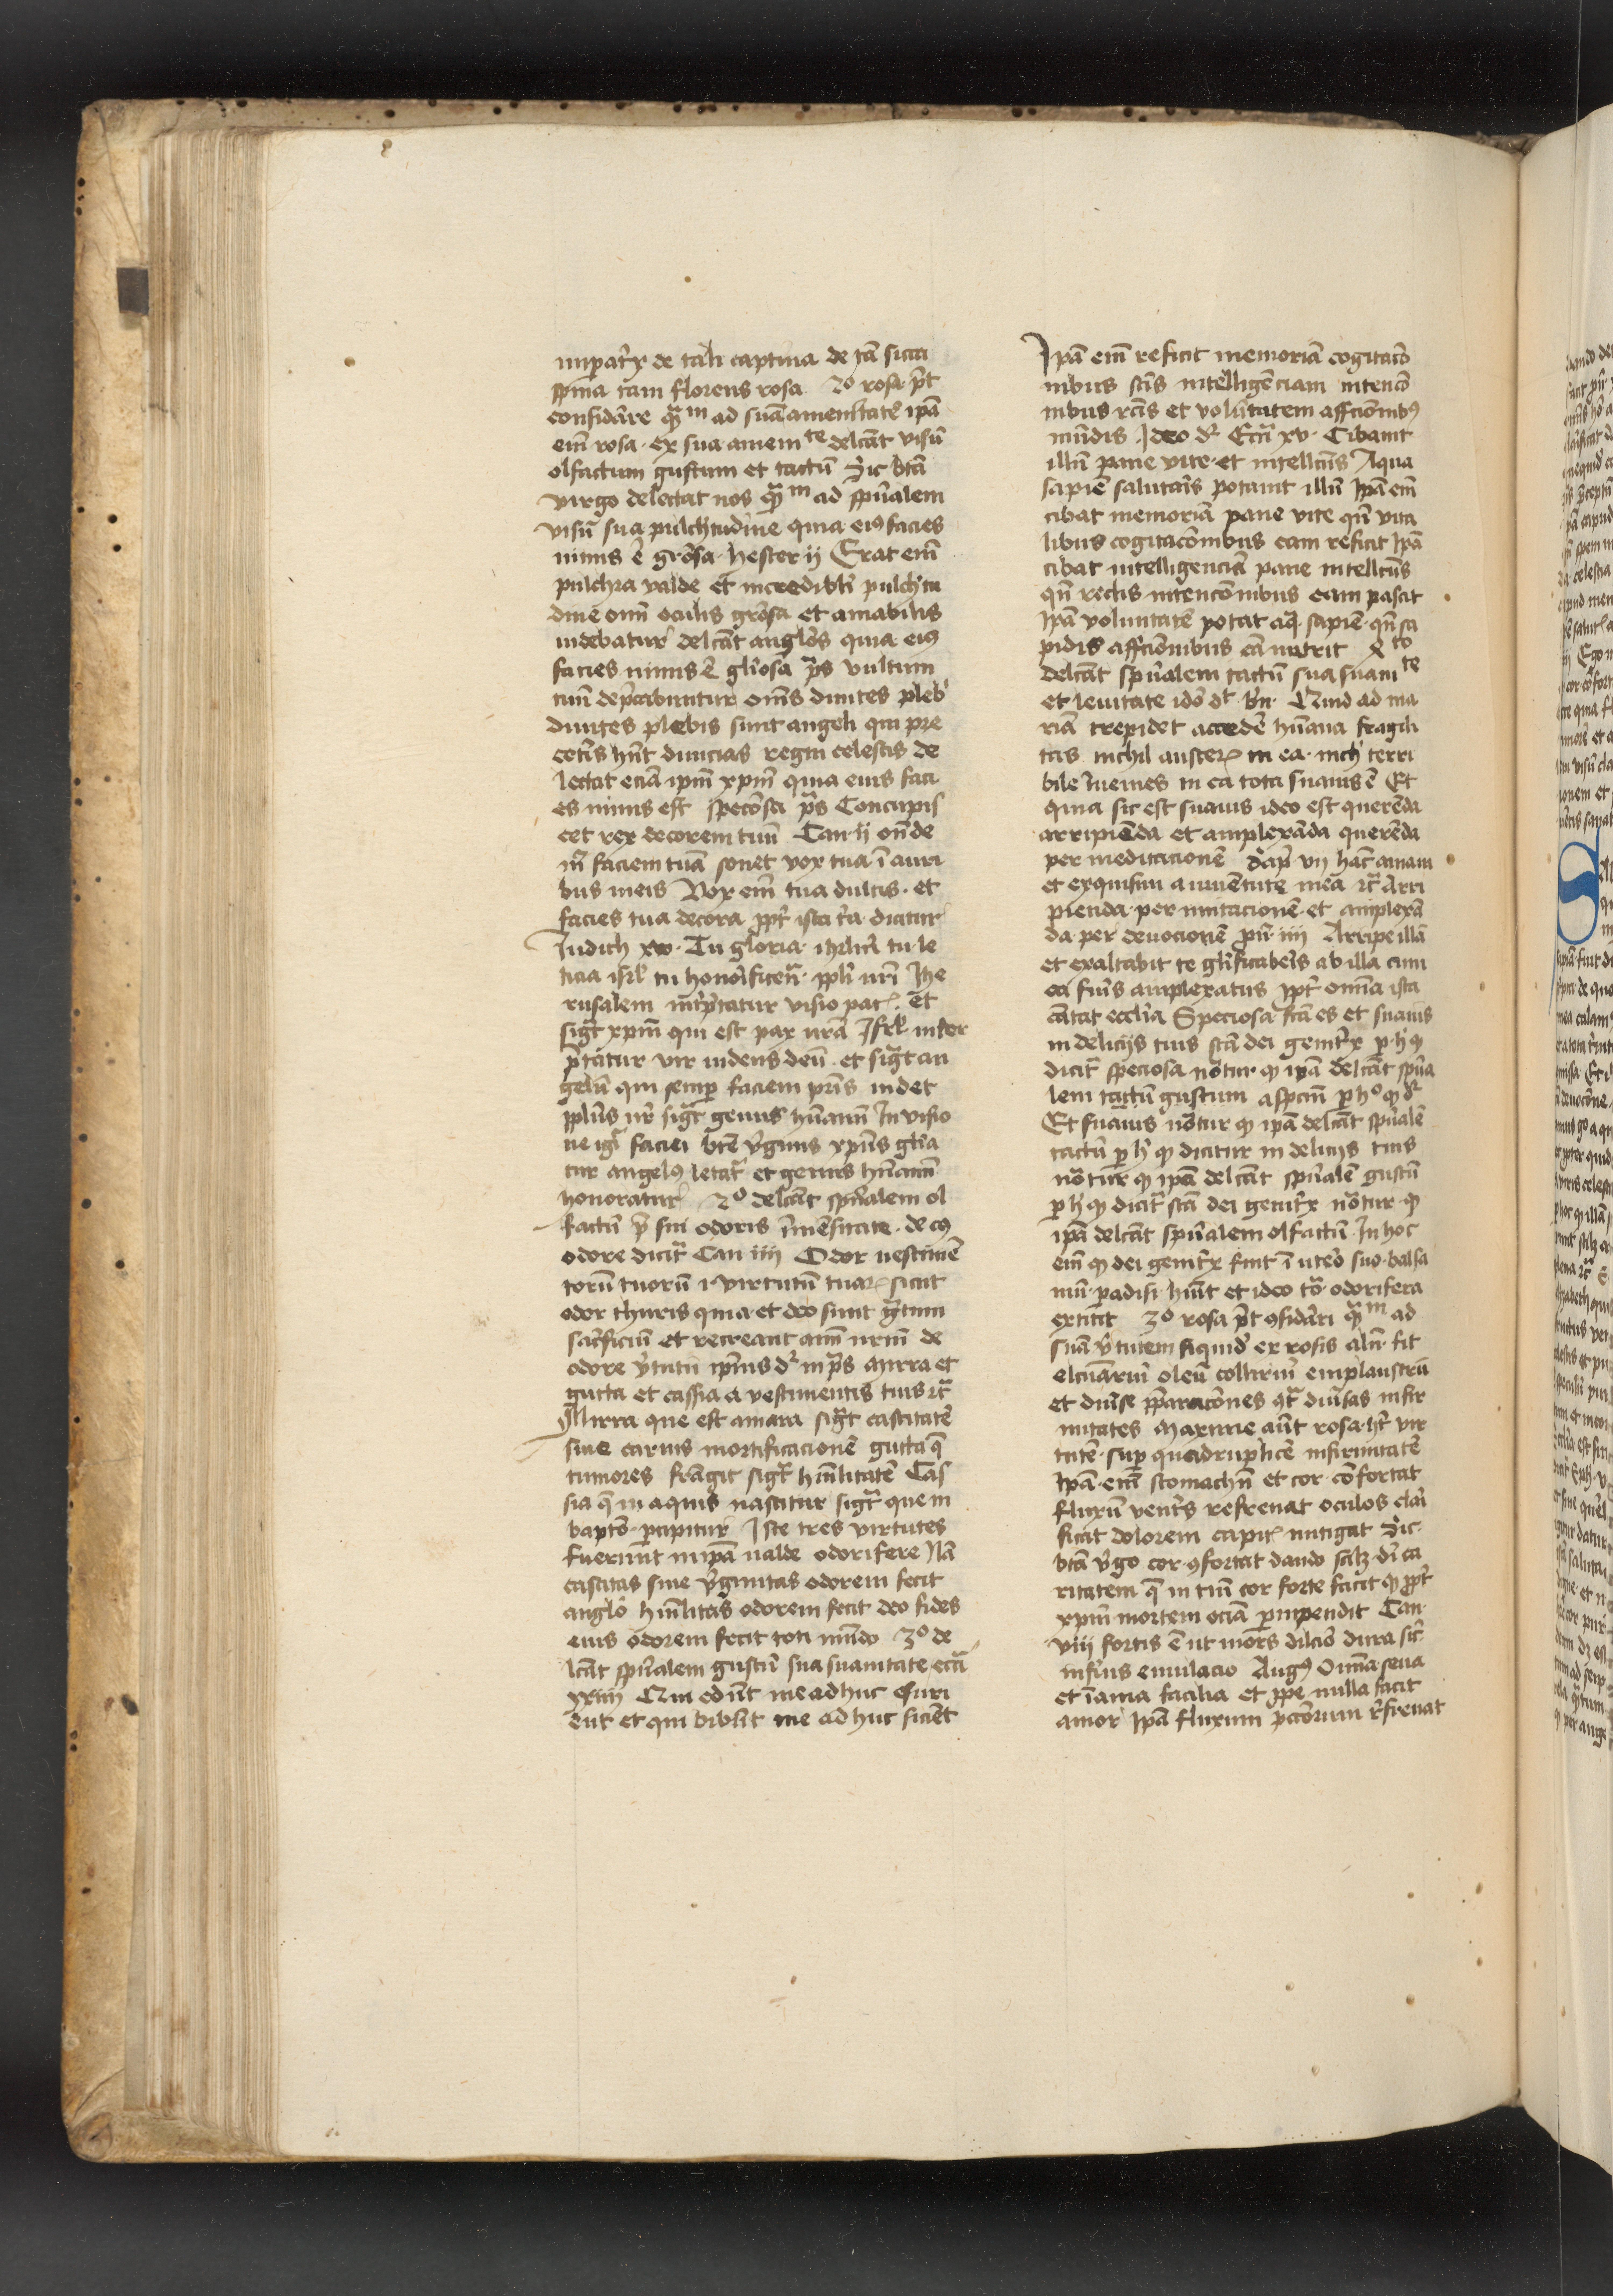 imperatͥx de tali captiua de tā sicca
spina tam florens rosa 2o rosa pͭt
considāre qᷓm ad suā amenitatē ipā
em̄ rosa ex sua amemte delcāt visū
olfactum gustum et tactū Sic btā
virgo delectat nos qᷓm ad spūalem
visū sua pulchtudine quia eiꝰ facies
nimis ē grōsa hester ij Erat em̄
pulchra valde et incredibli pulchtu
dine om̄ oculis grōsa et amabilis
videbatur delcāt anglōs quia eiꝰ
facies nimis ē gliosa ps vultum
tuū depcabuntur om̄s diuites pleb
diuites plebis sunt angeli qui pre
ceris hn̄t diuicias regni celestis de
lectat eciā ipm̄ xpm̄ quia eius faci
es nimis est speciōsa ps Concupis
cet rex decorem tuū Can ij on̄de
m̄ faciem tuā sonet vox tua ī auri
bus meis Vox em̄ tua dulcis et
facies tua decora ppt ista tᷓa dicitur
Judich xv Tu gloria ihrlm̄ tu le
ticia isrl tu honorificen̄ ppli nr̄i Ihe
rusalem int͛ptatur visio pacꝭ et
sigͭ xpm̄ qui est pax nr̄a Isrl inter
ptatur vir videns deū et sigͭ an
gelū qui semꝑ faciem pr̄is videt
pplūs nr̄ sigͭ genus hūanū In visio
ne igͥ faciei btē v̄ginis xpūs glia
tur angelꝰ letat et genus hūanū
honoratur 2o delcāt spūalem ol
factū p̄ sui odoris īmēsitate de cꝰ
odore dicit Can iiij Odor uestimē
torū tuorū i virtutū tuaꝝ sicut
odor thuris quia et deo sunt gᷓtum
sac͛ficiū et recreant aīm nr̄m de
odore v̄tutū ipīus dꝛ in ps Mirra et
gutta et cassia a vestimentis tuis ⁊c̄
Mirra que est amara sigͭ castitatē
siue carnis mortificacionē gutta q̄
tumores frāgit sigͭ hūilitatē Cas
sia q̄ in aquis nascitur sigͭ que in
baptō pcipitur Iste tres virtutes
fuerunt in ipā valde odorifere Nā
castitas siue v̄ginitas odorem fecit
anglō hūilitas odorem fecit deo fides
eius odorem fecit toti mūdo 3o de
lcāt spūalem gustū sua suauitate ecc̄i
xxiiij Qui edūt me adhuc esuri
ēnt et qui bibūt me adhuc siciēt
Ipā em̄ reficit memoriā cogitacō
nibus sc̄is intelligēciam intencō
nibus rc̄is et volūtatem affc̄ionibꝰ
mūdis Ideo dꝛ Ecc̄i xv Cibauit
illū pane vite et intellc̄us Aqua
sapiē salutaris potauit illū Ipā em̄
cibat memoriā pane vite qn̄ vita
libus cogitacōnibus eam reficit Ipā
cibat intelligenciā pane intellcūs
qn̄ rectis intencōnibus eam pascit
Ipā voluntatē potat aqᷓ sapiē qn̄ sa
pidis affcīonibus eā nutrit Xto
delcāt spūalem tactū sua suauite
et leuitate idō dꝛ bn̄ Quid ad ma
riā trepidet accedē hūana fragili
tas nichil austeꝝ in ea nich terri
bile īuenies in ea tota suauis ē Et
quia sic est suauis ideo est querēda
arripiēda et amplexāda querēda
per meditacionē Sap vij hāc amaui
et exquisiui a iuuētute mea ⁊c̄ Arri
pienda per imitacionē et amplexā
da per deuocionē pū iiij Arripe illā
et exaltabit te glīficaberis ab illa cum
eā fuis amplexatus Ipt om̄ia ista
cātat ecclia Speciosa fc̄a es et suauis
in delicijs tuis sc̄a dei genitͥx p h̄ qꝫ
dicit speciosa nōtur qꝫ ipā delcāt spūa
lem tactū gustum aspcūm p ho qꝫ dꝛ
Et suauis nōtur qꝫ ipā delcāt spūalē
tactū p h qꝫ dicitur in delicijs tuis
nōtur qꝫ ipā delcāt spūalē gustū
p h qꝫ dicit sc̄a dei genitͥx nōtur qꝫ
ipā delcāt spūalem olfactū In hoc
em̄ qꝫ dei genitͥx fuit ī utero suo balsa
mū padisi hūit et ideo tᷓ odorifera
extitit 3o rosa pͭt ꝯsidāri qᷓm ad
suā v̄tutem siquid ex rosis alit̄ fit
elcūariū oleū collir̄iū emplaustrū
et diūse pparacōnes ꝯᷓ diūsas infir
mitates Maxime aūt rosa ht̄ vir
tutē sup quadruplicē infirmitatē
Ipā em̄ stomachū et cor cōfortat
fluxū ventͥs refrenat oculos clari
ficat dolorem capitꝭ mitigat Sic
btā v̄go cor ꝯfortat dando scilꝫ di ca
ritatem q̄ in tm̄ cor forte facit qꝫ ppt
xpm̄ mortem eciā ꝑuipendit Can
viij fortis ē ut mors dilcīo dura sic
infnus emulacio Augꝰ Om̄ia seua
et īania facilia et ꝓpe nulla facit
amor Ipā fluxum pccōrum rͤfrenat